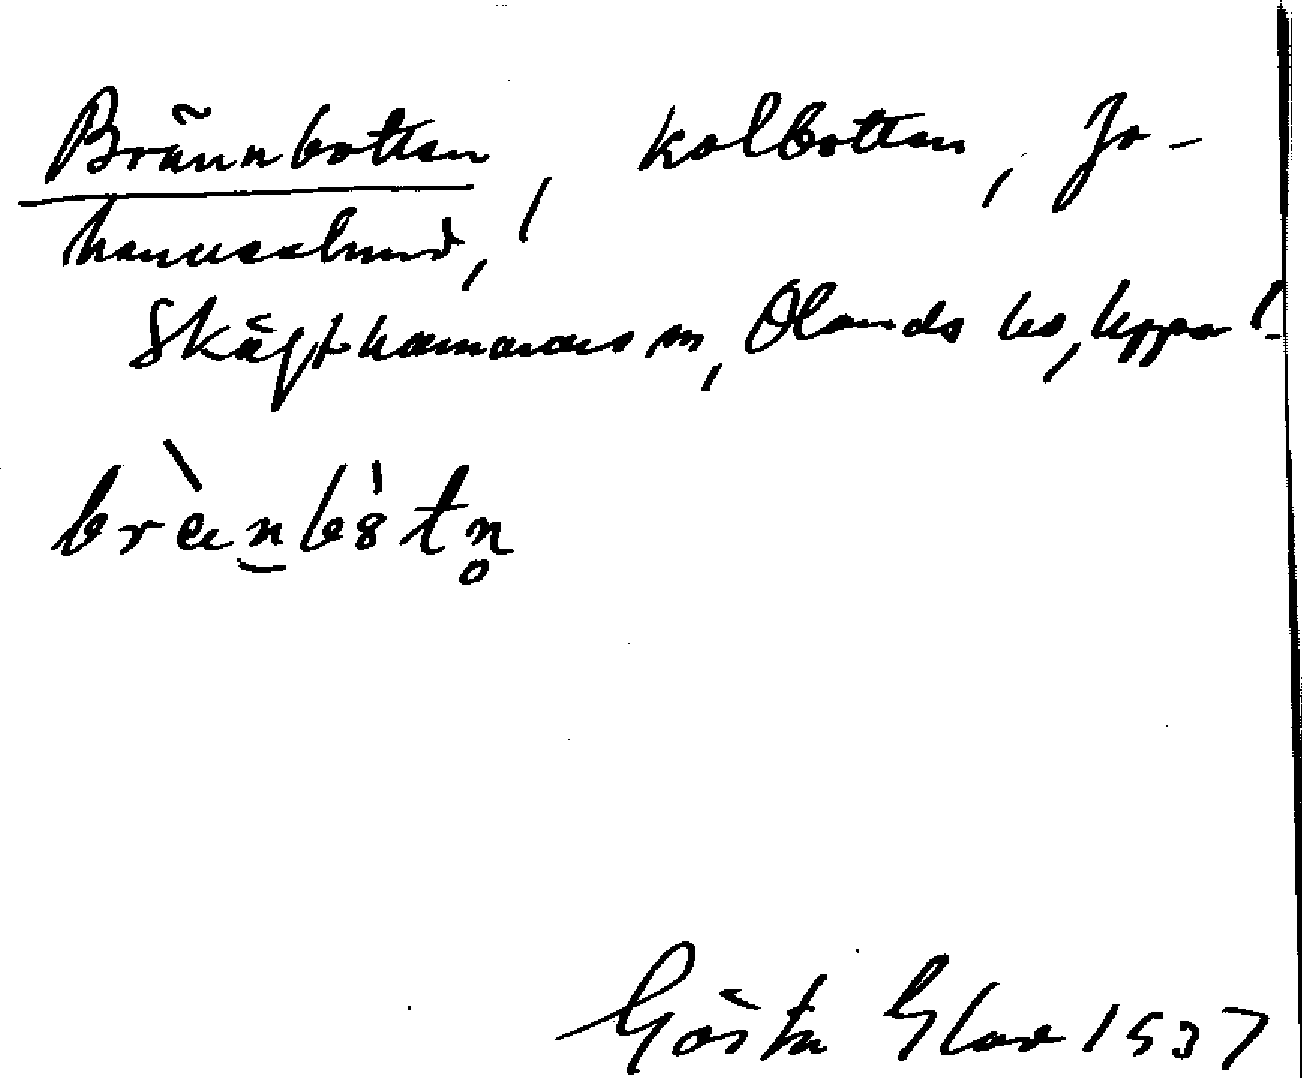 Brännbotten, kolbotten, Jo-
hanneslund,
Skäfthammars sn, Olands hd, Uppl.
brän̲bötn̥
Gösta
1937